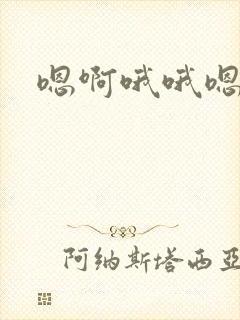 嗯啊哦哦嗯
阿纳斯塔西亚